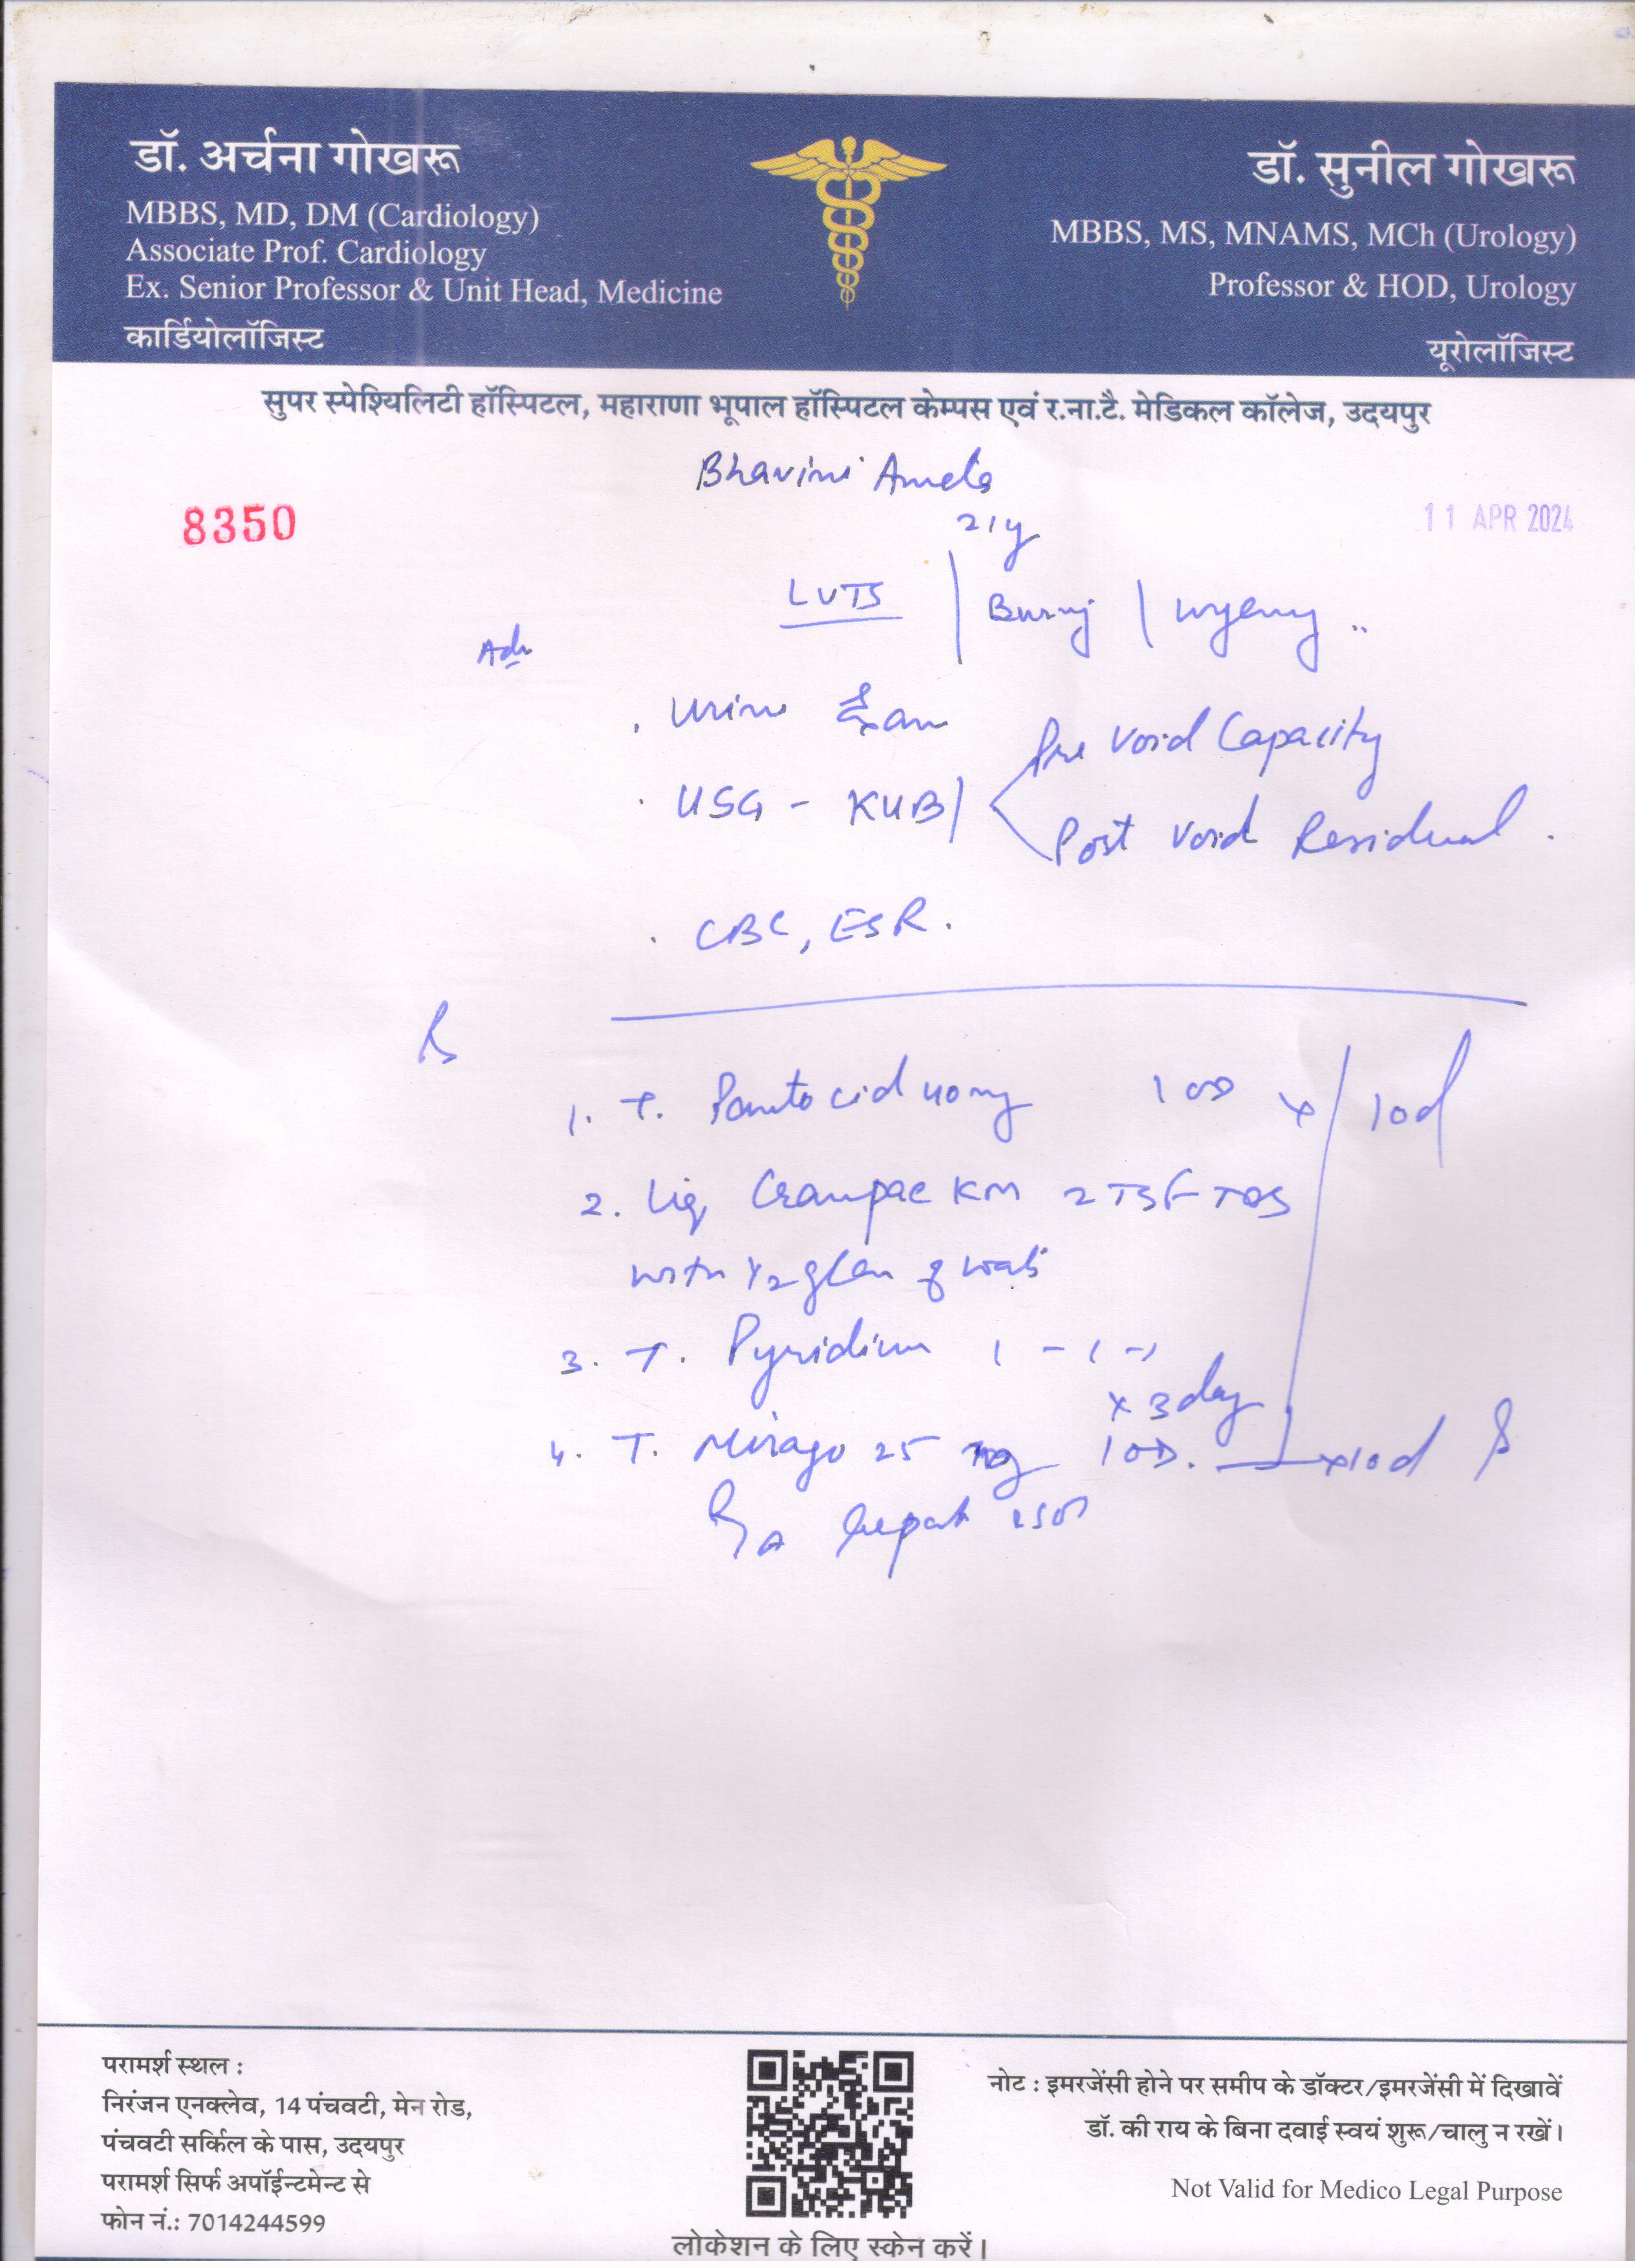 डॉ. अर्चना गोखरू
MBBS, MD, DM (Cardiology)
Associate Prof. Cardiology
Ex. Senior Professor & Unit Head, Medicine
कार्डियोलॉजिस्ट
डॉ. सुनील गोखरू
MBBS, MS, MNAMS, MCh (Urology)
Professor & HOD, Urology
यूरोलॉजिस्ट
सुपर स्पेश्यिलिटी हॉस्पिटल, महाराणा भूपाल हॉस्पिटल केम्पस एवं र.ना.टै. मेडिकल कॉलेज, उदयपुर
Bhavini
8350
11 APR 2024
21y
LUTS | Burning | urgency ..
Adv
. Urine Exam
. USG - KUB / Pre Void Capacity
Post Void Residual .
. CBC, ESR.
Rx
1. T. Pantocid 40mg 1 OD x / 10d
2. Liq Cranpac KM 2 TSF TDS
with 1/2 glass of water
3. T. Pyridium 1 - 1 - 1
x 3 day
4. T. Mirago 25 mg 1 OD. x 10d
परामर्श स्थल :
निरंजन एनक्लेव, 14 पंचवटी, मेन रोड,
पंचवटी सर्किल के पास, उदयपुर
परामर्श सिर्फ अपॉईन्टमेन्ट से
फोन नं.: 7014244599
लोकेशन के लिए स्केन करें।
नोट : इमरजेंसी होने पर समीप के डॉक्टर/इमरजेंसी में दिखावें
डॉ. की राय के बिना दवाई स्वयं शुरू/चालु न रखें।
Not Valid for Medico Legal Purpose